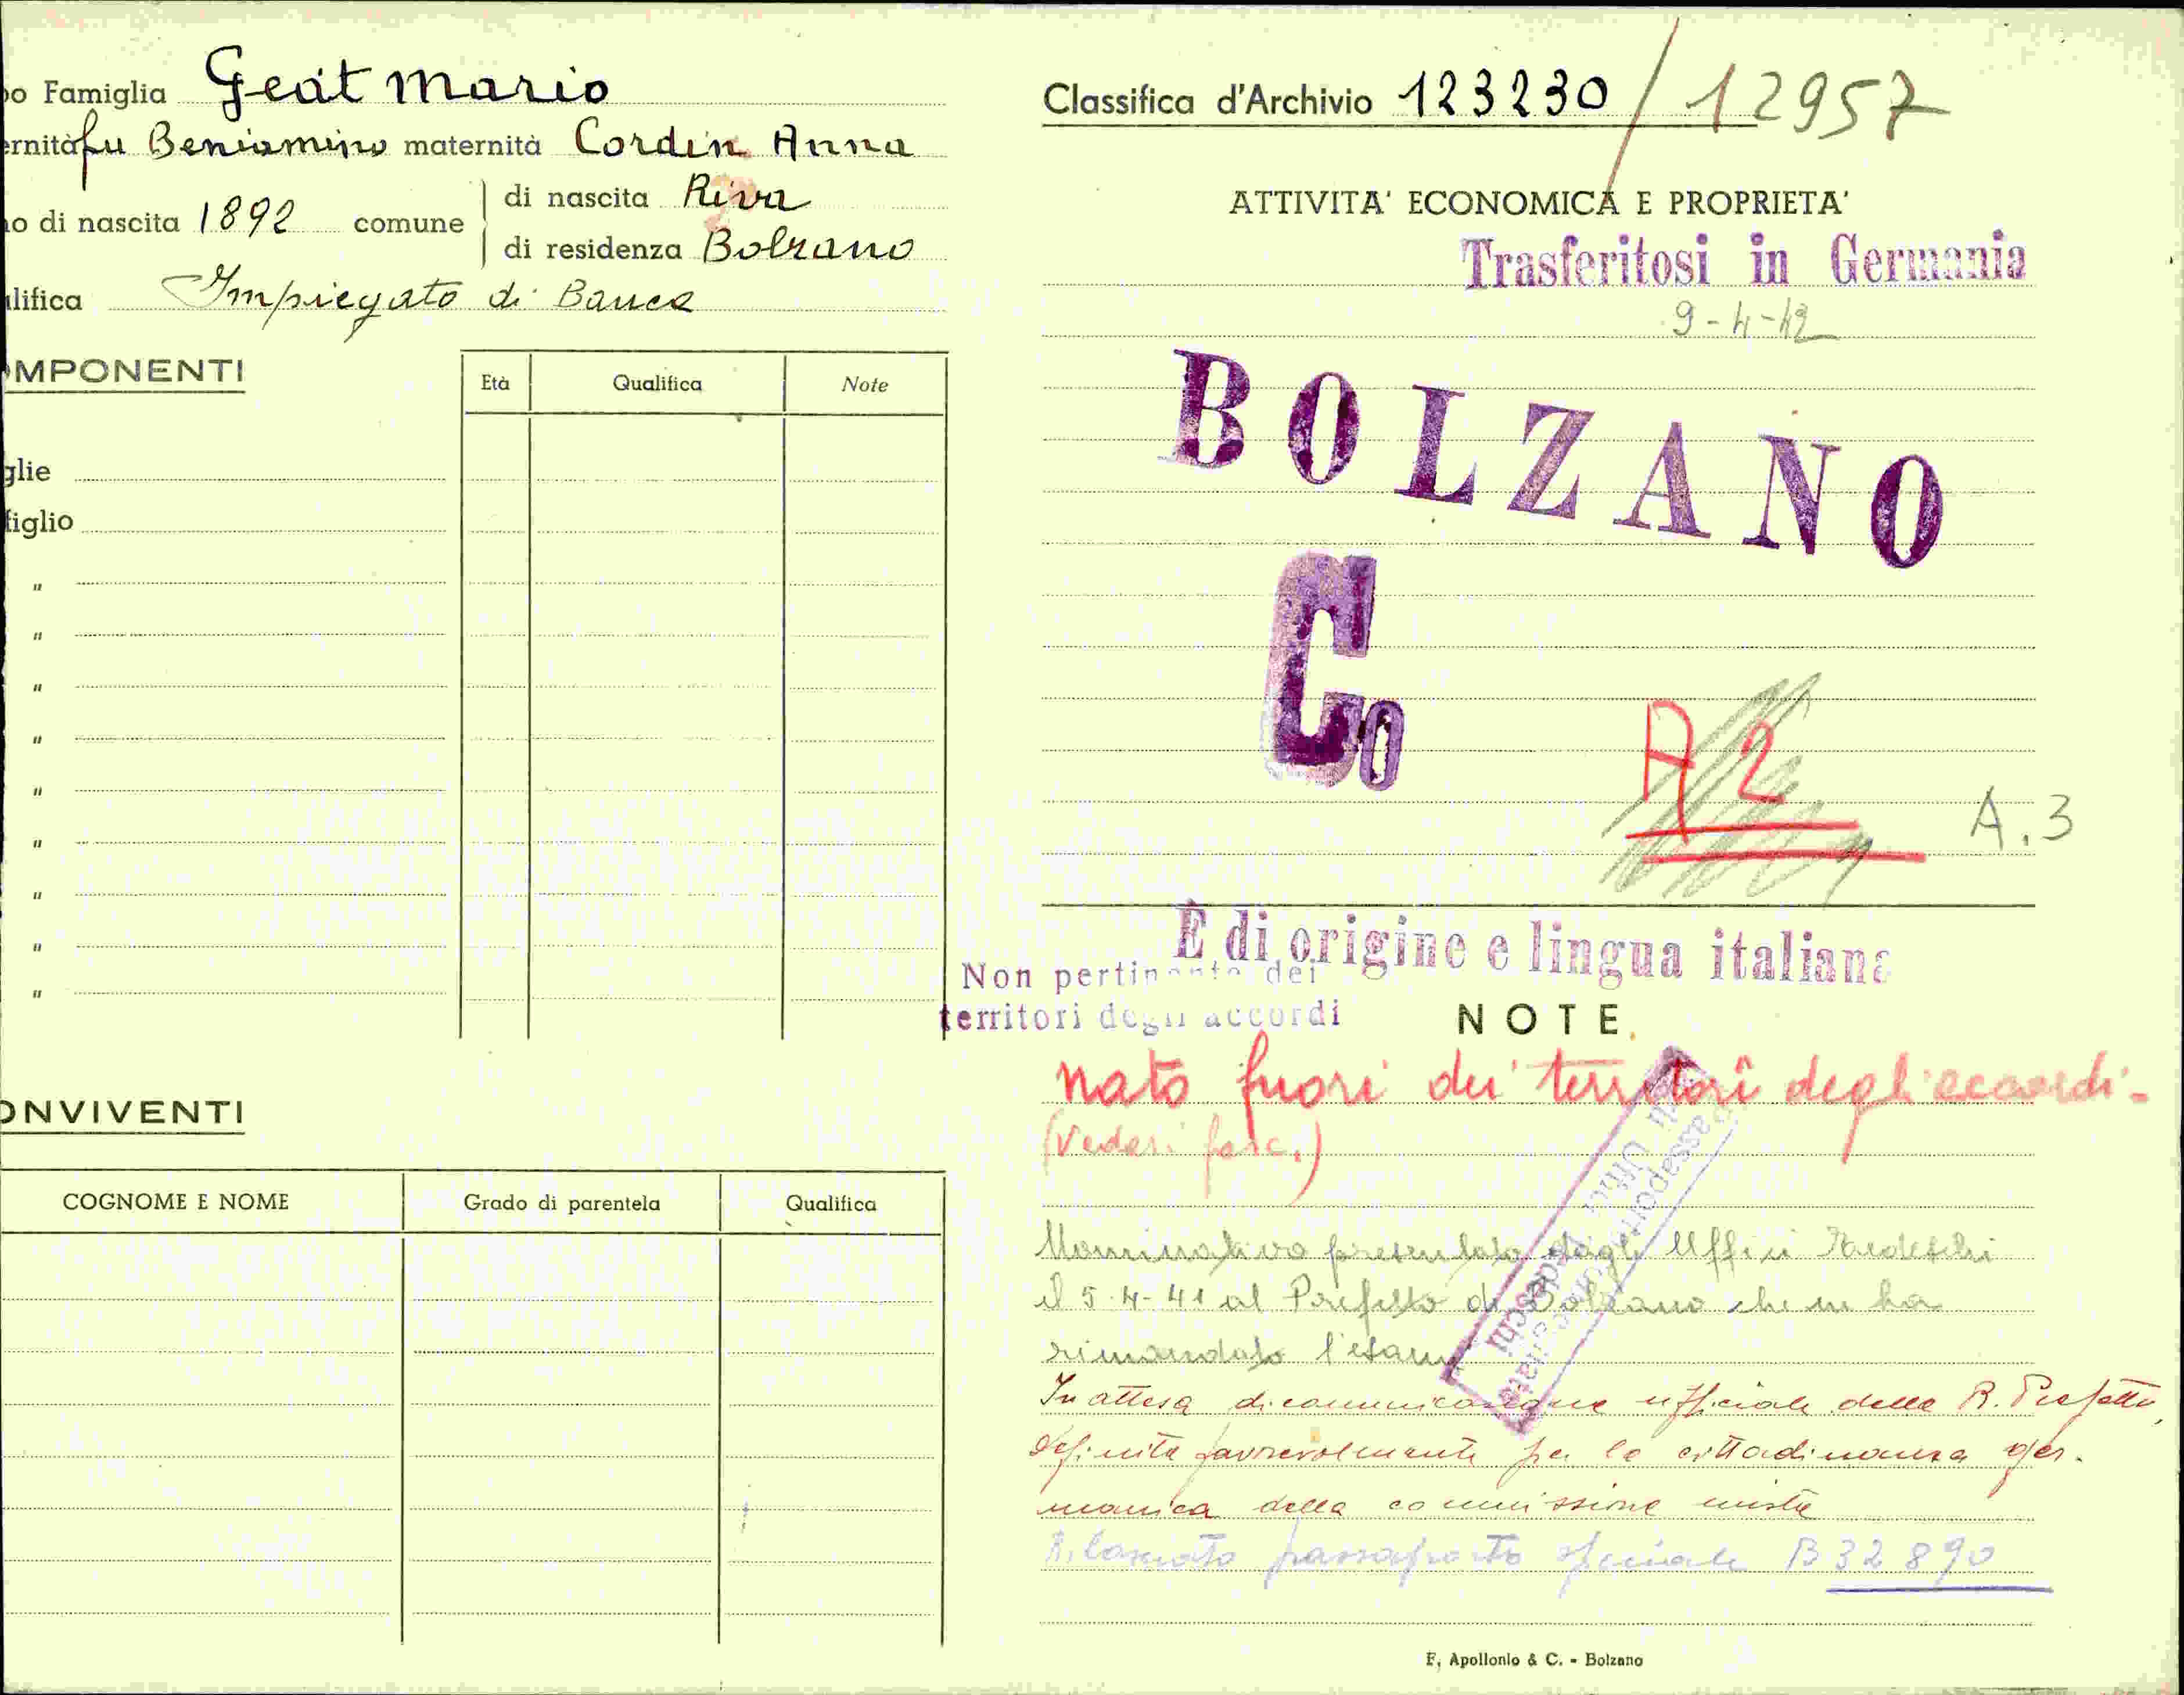 o Famiglia Geat Mario
ernità fu Beniamino maternità Cordin Anna
o di nascita 1892 comune
di nascita Riva
di residenza Bolzano
lifica Impiegato di Banca
MPONENTI
Età Qualifica Note
glie
figlio
"
"
"
"
"
"
"
"
"
ONVIVENTI
COGNOME E NOME Grado di parentela Qualifica
Classifica d'Archivio 123230 / 12957
ATTIVITA' ECONOMICA E PROPRIETA'
Trasferitosi in Germania
9-4-42
BOLZANO
Co
A2
A.3
È di origine e lingua italiana
Non pertinente dei
territori degli accordi
NOTE
nato fuori dei territori degli accordi -
(Vedasi fasc.)
Nominativo presentato dagli Uffici Tedeschi
il 5-4-41 al Prefetto di Bolzano che ne ha
rimandato l'esame
In attesa di comunicazione ufficiale della R. Prefett.
definita favorevolmente per la cittadinanza ger-
manica della commissione mista
Rilasciato passaporto speciale B 32890
F. Apollonio & C. - Bolzano